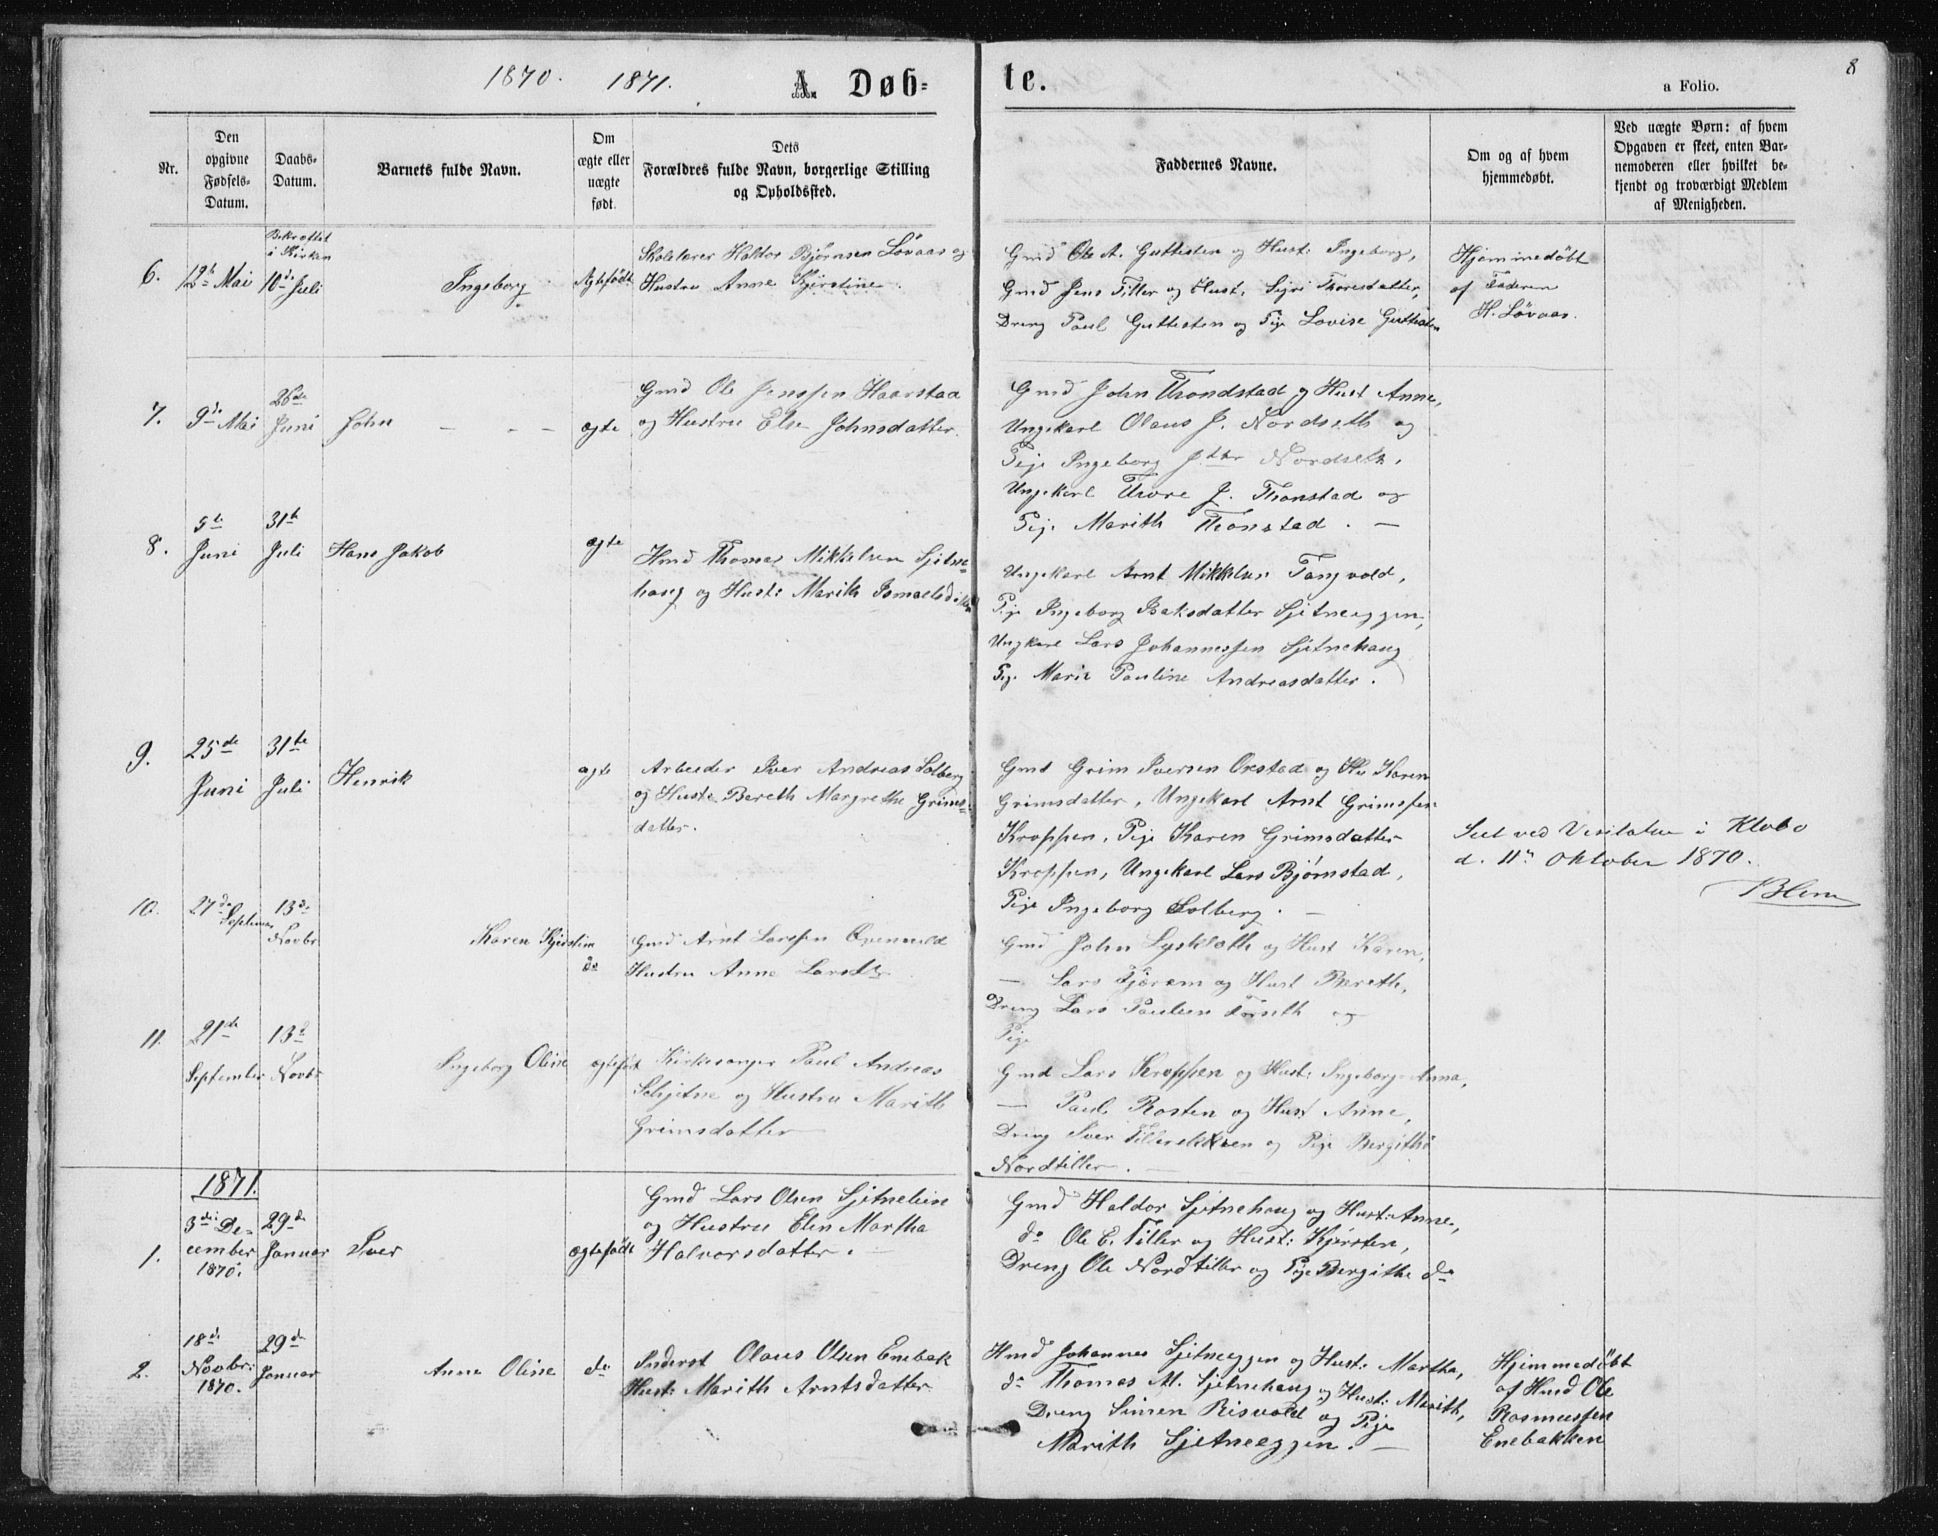 1870. 1871. A. Døbte. 8
a Folio.
Nr.
Den opgivne Fødsels-Datum.
Daabs-Datum.
Barnets fulde Navn.
Om ægte eller uægte født.
Dets Forældres fulde Navn, borgerlige Stilling og Opholdssted.
Faddernes Navne.
Om og af hvem hjemmedøbt.
Ved uægte Børn: af hvem Opgaven er skeet, enten Barnemoderen eller hvilket bekjendt og troværdigt Medlem af Menigheden.
6. 12te Mai
Bekræftet i Kirken 10de Juli
Ingeborg
Ægtefødt
Skolelærer Haldor Bjørnsen Løvaas og
Hustru Anne Kjerstine
Gmd Ole A. Guttesten og Hust: Ingeborg,
Gmd Jens Tiller og Hust. Sigri Thoresdatter,
Dreng Paul Guttesten og Pige Lovise Guttesten
Hjemmedøbt
af Faderen
H. Løvaas.
7. 9de Mai
26de Juni
John
ægte
Gmd Ole Jenssen Haarstad
og Hustru Else Johnsdatter.
Gmd John Thondstad og Hust Anne,
Ungekarl Olaus J. Nordseth og
Pige Ingeborg Jdtr Nordseth,
Ungekarl Thore J. Thonstad og
Pige Marith Thonstad. —
8. 5te Juni
31te Juli
Hans Jakob
ægte
Hmd Thomas Mikkelsen Sjetne-
haug og Hust: Marith Ismaelsdtter
Ungekarl Arnt Mikkelsen Tangvold,
Pige Ingeborg Isaksdatter Sjetneeggen,
Ungkarl Lars Johannessen Sjetnehaug
Pige Marie Pauline Andreasdatter.
9. 25de Juni
31te Juli
Henrik
ægte
Arbeider Iver Andreas Solberg
og Hust: Bereth Margrethe Grims-
datter.
Gmd Grim Iversen Orstad og Hu Karen
Grimsdatter, Ungekarl Arnt Grimssen
Kroppen, Pige Karen Grimsdatter
Kroppen, Ungekarl Lars Bjørnstad,
Pige Ingeborg Solberg. —
Seet ved Visitatsen i Klæbo
d. 11te Oktober 1870.
10. 27de September
13de Novbr
Karen Kjerstine
do
Gmd Arnt Larssen Qvenild
Hustru Anne Larsdtr
Gmd John Lysklæth og Hust Karen,
— Lars Tjerem og Hust Bereth,
Dreng Lars Paulsen og
Pige
11. 21de September
13d Novbr
Ingeborg Oline
ægtefødt
Kirkesanger Paul Andreas
Schjetne og Hustru Marith
Grimsdatter
Gmd Lars Kroppen og Hust: Ingeborg Anna,
— Paul Rosten og Hust Anne,
Dreng Iver Tillerekkren og Pige Bergitha
Nordtiller. —
1871.
1. 3die December 1870.
29de Januar
Iver
ægtefødt
Gmd Lars Olsen Sjetnelien
og Hustru Elen Martha
Halvorsdatter.
Gmd Haldor Sjetnehaug og Hust: Anne,
do Ole E. Tiller og Hust: Kjersten,
Dreng Ole Nordtiller og Pige Bergithe do
2. 18de Novbr: 1870.
29de Januar
Anne Oline
do
Inderst Olaus Olsen Enebak
Hust: Marith Arntsdatter
Hmd Johannes Sjetneeggen og Hust: Martha,
do Thomas M. Sjetnehaug og Hust: Marith,
Dreng Simen Risvold og Pige
Marith Sjetneeggen. —
Hjemmedøbt
af Hmd Ole
Rasmussen
Enebakken